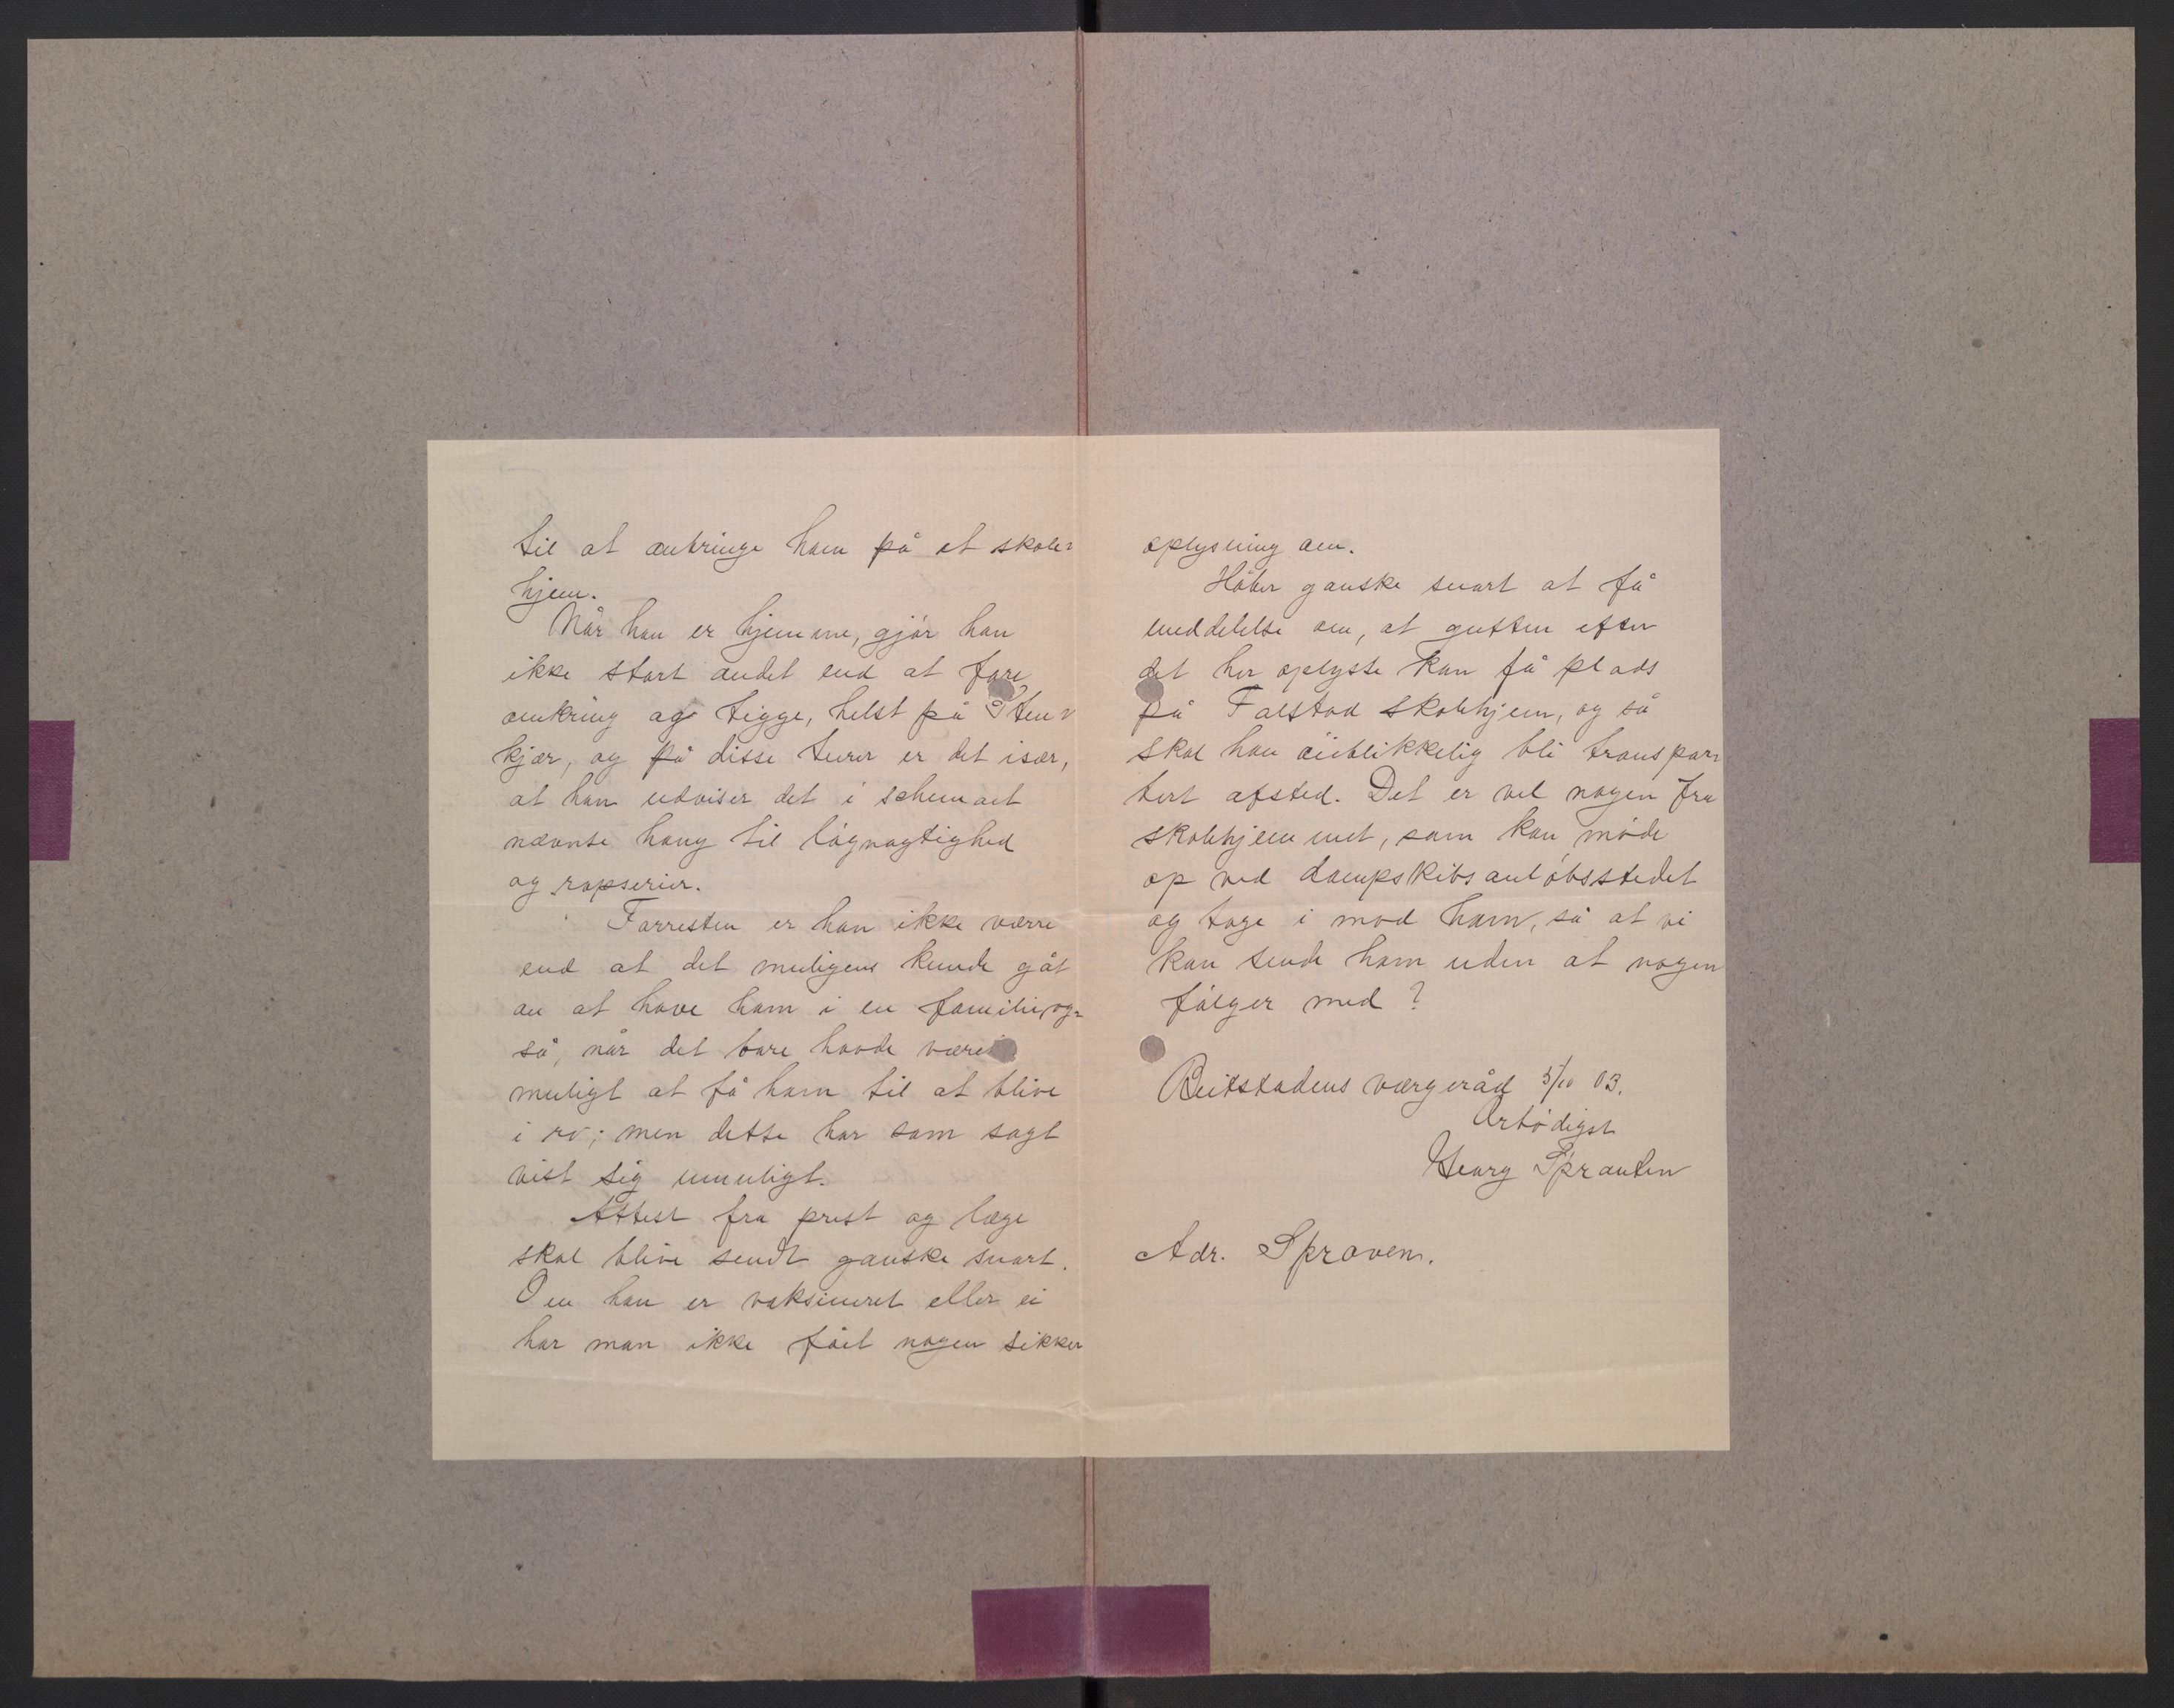 til at anbringe ham på et skole=
hjem.
Når han er hjemme, gjør han
ikke stort andet end at fare
omkring og tigge, helst på Sten=
kjær, og på disse turer er det især,
at han udviser det i schemaet
nævnte hang til løgnagtighed
og rapserier.
Forresten er han ikke værre
end at det muligens kunde gåt
an at have ham i en familie og=
så, når det bare havde været
muligt at få ham til at blive
i ro; men dette har som sagt
vist sig umuligt.
Attest fra prest og læge
skal blive sendt ganske snart.
Om han er vaksineret eller ei
har man ikke fået nogen sikker
oplysning om.
Håber ganske snart at få
meddelelse om, at gutten efter
det her oplyste kan få plads
på Falstad skolehjem, og så
skal han øieblikkelig bli transpor=
tert afsted. Det er vel nogen fra
skolehjemmet, som kan møde
op ved dampskibsanløbsstedet
og tage i mod ham, så at vi
kan sende ham uden at nogen
følger med?
Beitstadens værgeråd 5/10 03.
Ærbødigst
Georg Sprauten
Adr. Sproven.